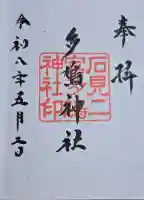 奉拝
多鳩神社
石見二
神社印
令和八年五月